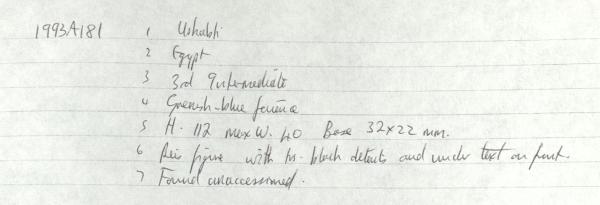 1993A181 1 Ushabti
2 Egypt
3 3rd Intermediate
4 Greenish-blue faience
5 H. 112 max W. 40 Base 32x22 mm.
6 figure with black details and under text on front.
7 Found unaccessioned.